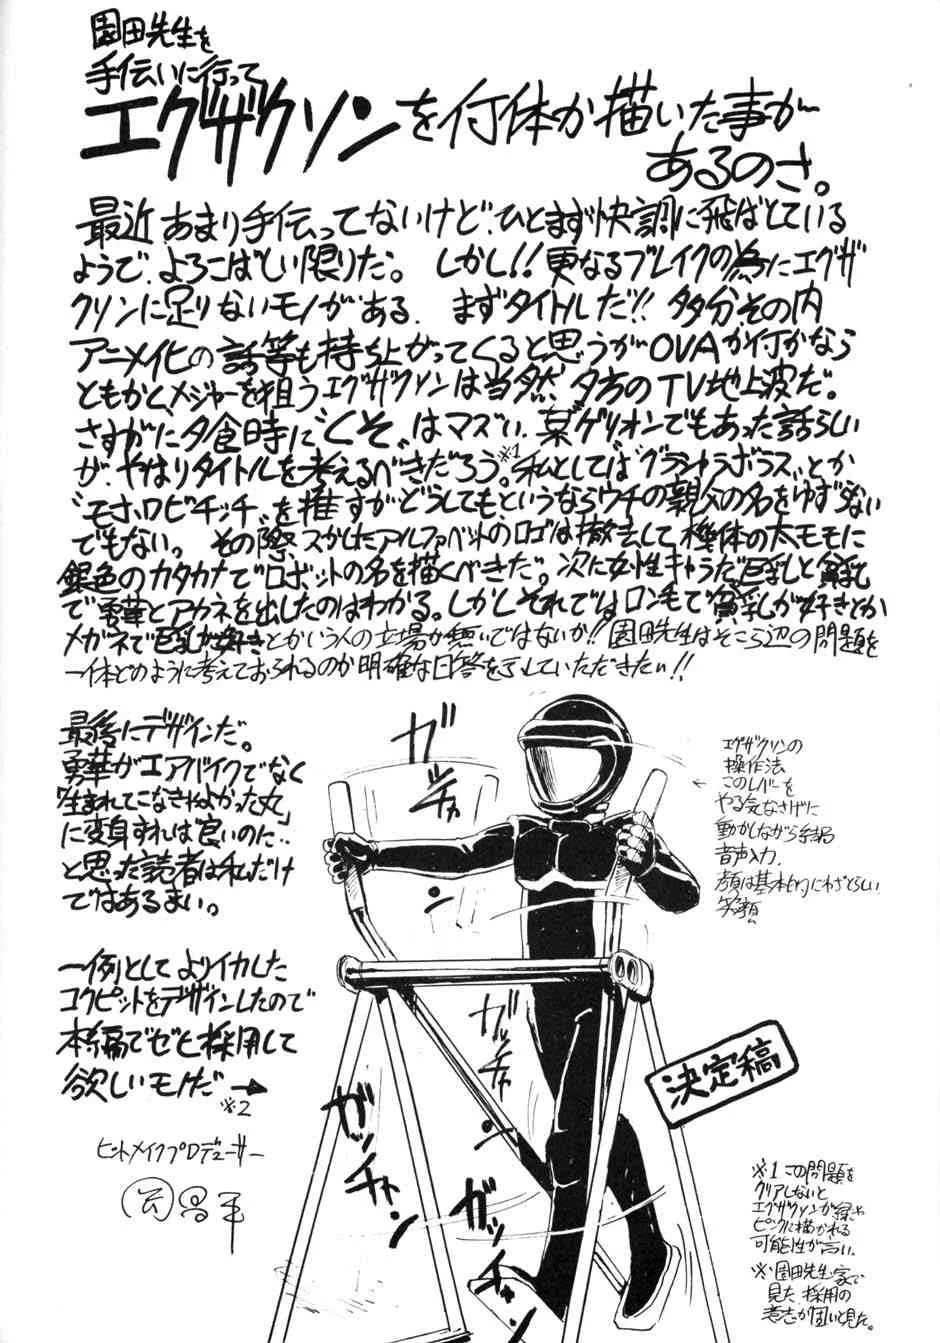 園田先生を
手伝いに行って
エグザクソンを何体か描いた事が
あるのさ。
最近あまり手伝ってないけど、ひとまず快調に飛ばしている
ようで、よろこばしい限りだ。 しかし!!更なるブレイクの為にエグザ
クソンに足りないモノがある。 まずタイトルだ!! 多分その内
アニメ化の話等も持ち上がってくると思うがOVAか何かなら
ともかく、メジャーを狙うエグザクソンは当然、夕方のTV地上波だ。
さすがに夕食時に〝くそ〟はマズい。某ゲリオンでもあった話らしい
が、やはりタイトルを考えるべきだろう。※1 私としては〝グラシャラボラス〟とか
〝モホロビチッチ〟を推すがどうしてもというならウチの親父の名をゆずらない
でもない。 その際スかしたアルファベットのロゴは撤去して機体の太モモに
銀色のカタカナでロボットの名を描くべきだ。次に女性キャラだ巨乳と貧乳
で勇華とアカネを出したのはわかる。しかしそれではロン毛で貧乳が好きとか
メガネで巨乳が好きとかいう人の立場が無いではないか!! 園田先生はそこら辺の問題を
一体どのように考えておられるのか明確な回答を示していただきたい!!
最後にデザインだ。
勇華がエアバイクでなく
「生まれてこなきゃよかった丸」
に変身すれば良いのに…
と思った読者は私だけ
ではあるまい。
一例としてよりイカした
コクピットをデザインしたので
本編でゼヒ採用して
欲しいモノだ→
※2
ヒットメイクプロデューサー
ガチャン
ガッチャン
ガッチャン
ガッチャン
エグザクソンの
操作法
このレバーを
やる気なさげに
動かしながら結局
音声入力.
顔は基本的にわざとらしい
笑顔。
決定稿
※1 この問題を
クリアしないと
エグザクソンが緑や
ピンクに描かれる
可能性が高い.
※園田先生家で
見た.採用の
意志が固いと見た。